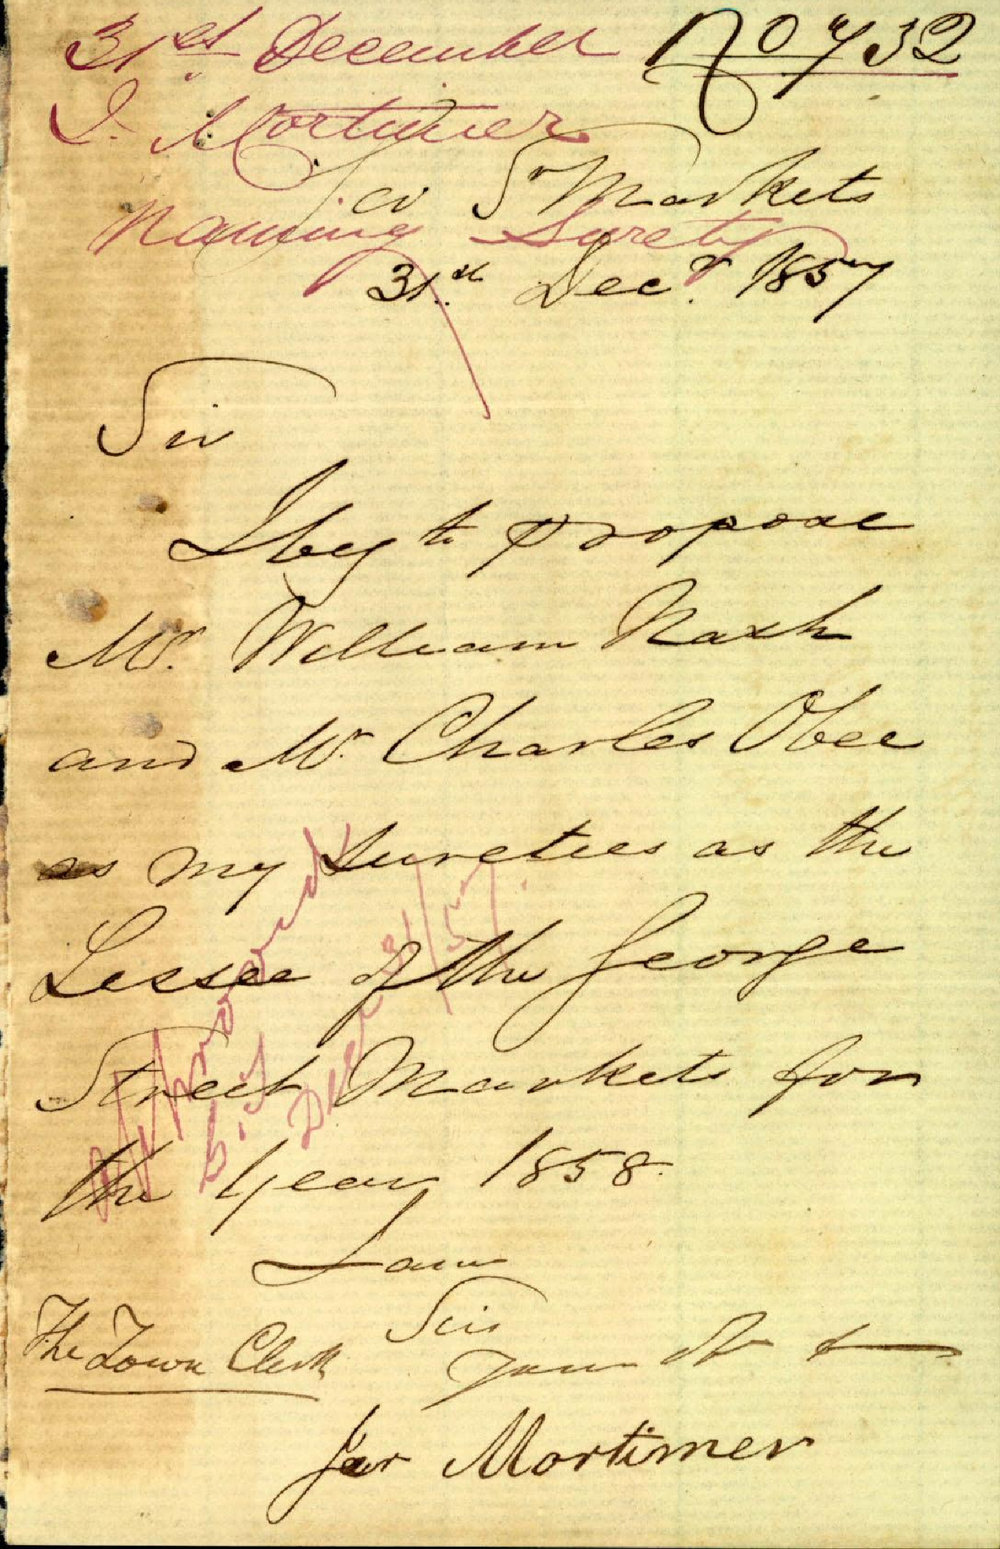 31st December No 732
J. Mortimer
Geo St Markets
Naming Surety
31st Decr. 1857
Sir
I beg to propose
Mr. William Nash
and Mr. Charles Obee
as my sureties as the
Lessee of the George
Street Markets for
the Year 1858.
Approved
Decr 31/57
I am
Sir
The Town Clerk
Your
Jas Mortimer